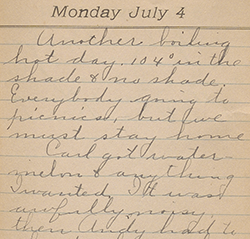 Monday July 4
Another boiling
hot day. 104° in the
shade & no shade.
Everybody going to
picnics, but we
must stay home
Carl got water-
melon & anything
I wanted. It was
awfully noisy,
then Andy had to